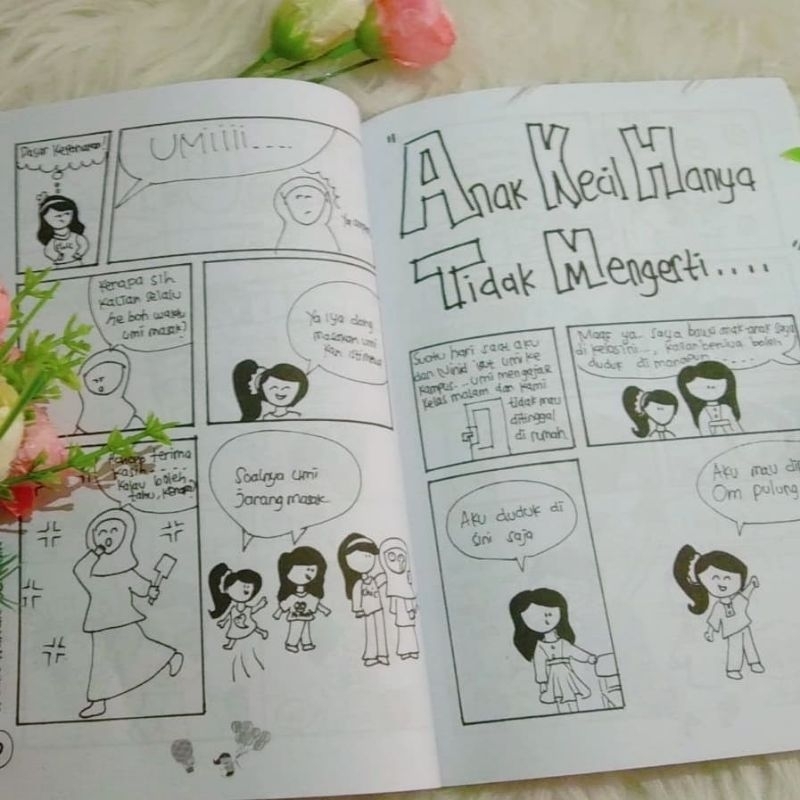 Dasar Kerenanao!
UMiiii....
Ya ampu
Kenapa sih
kalian selalu
heboh waktu
umi masak?
Ya iya dong
masakan umi
kan istimewa
terima
kasih...
kalau boleh
tahu, kenapa?
Soalnya umi
jarang masak..
"Anak Kecil Hanya
Tidak Mengerti...."
Suatu hari saat aku
dan ikut umi ke
kampus... umi mengajar
kelas malam dan kami
tidak mau
ditinggal
di rumah
Maaf ya.. saya bawa anak-anak saya
di kelas ini..., kalian berdua boleh
duduk di manapun.....
Aku duduk di
sini saja
Aku mau di
Om pulung